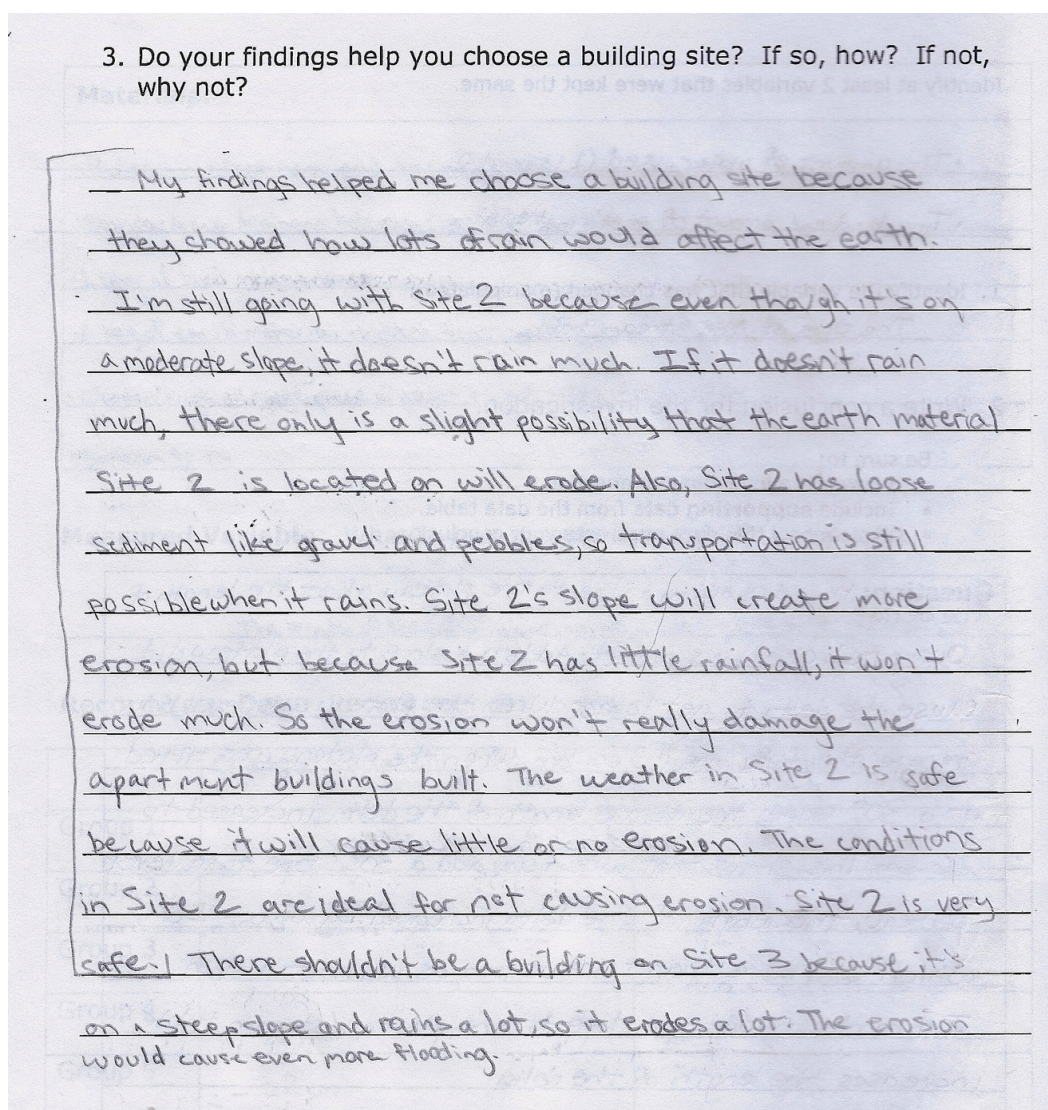 3. Do your findings help you choose a building site? If so, how? If not,
why not?
My findings helped me choose a building site because
they showed how lots of rain would affect the earth.
I'm still going with Site 2 because even though it's on
a moderate slope, it doesn't rain much. If it doesn't rain
much, there only is a slight possibility that the earth material
Site 2 is located on will erode. Also, Site 2 has loose
sediment like gravel and pebbles, so transportation is still
possible when it rains. Site 2's slope will create more
erosion, but because Site 2 has little rainfall, it won't
erode much. So the erosion won't really damage the
apartment buildings built. The weather in Site 2 is safe
because it will cause little or no erosion. The conditions
in Site 2 are ideal for not causing erosion. Site 2 is very
safe! There shouldn't be a building on Site 3 because it's
on a steep slope and rains a lot, so it erodes a lot. The erosion
would cause even more flooding.